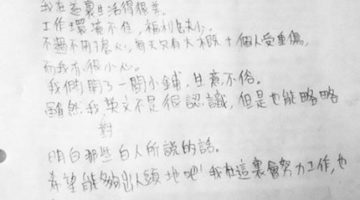 我在這裏生活得很苦。
工作環境不佳，福利也缺少。
不過不用了擔心，每天只有大概十個人受重傷，
而我亦很小心。
我們開了一間小鋪，日　　不俗。
雖然我　英文不是很認識，但是也能略略
對
明白那些白人所說的話。
希望能夠出人頭地吧！我在這裏會努力工作，也